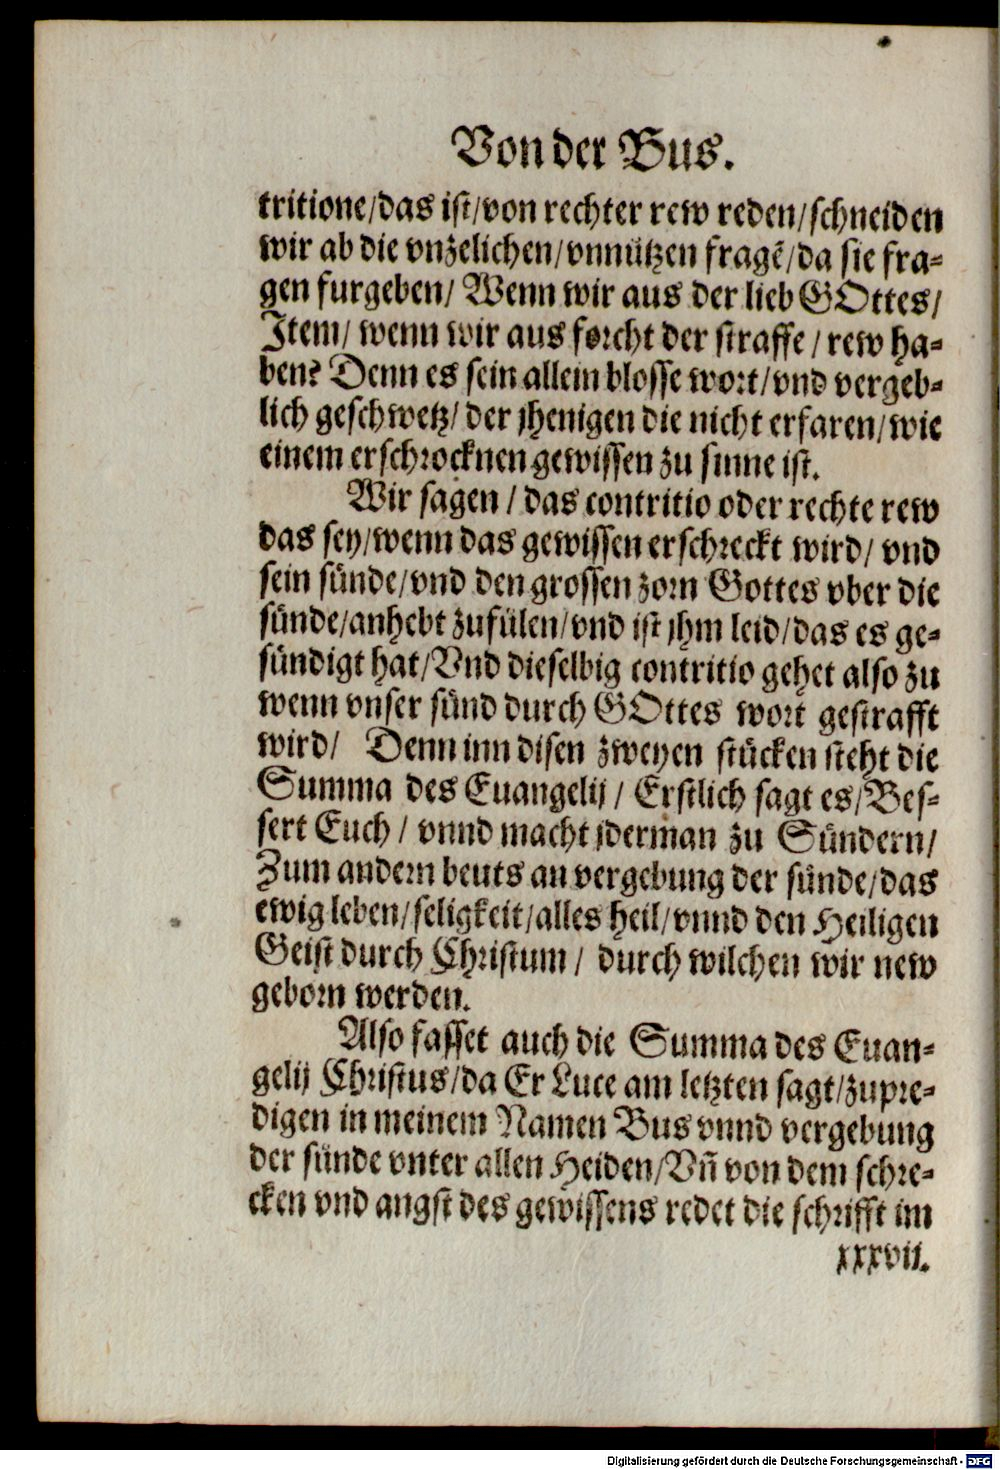 Von der Bus.
tritione/das ist/von rechter rew reden/schneiden
wir ab die vnzelichen/vnnützen fragẽ/da sie fra-
gen furgeben/ Wenn wir aus der lieb GOttes/
Item/ wenn wir aus forcht der straffe / rew ha-
ben? Denn es sein allein blosse wort/vnd vergeb-
lich geschwetz/ der jhenigen die nicht erfaren/wie
einem erschrocknen gewissen zu sinne ist.
Wir sagen / das contritio oder rechte rew
das sey/wenn das gewissen erschreckt wird/ vnd
sein sünde/vnd den grossen zorn Gottes vber die
sünde/anhebt zufülen/vnd ist jhm leid/das es ge-
sündigt hat/Vnd dieselbig contritio gehet also zu
wenn vnser sünd durch GOttes wort gestrafft
wird/ Denn inn disen zweyen stücken steht die
Summa des Euangelij / Erstlich sagt es/Bes-
sert Euch / vnnd macht jderman zu Sündern/
Zum andern beuts an vergebung der sünde/das
ewig leben/seligkeit/alles heil/vnnd den Heiligen
Geist durch Christum / durch wilchen wir new
geborn werden.
Also fasset auch die Summa des Euan-
gelij Christus/da Er Luce am letzten sagt/zupre-
digen in meinem Namen Bus vnnd vergebung
der sünde vnter allen Heiden/Vñ von dem schre-
cken vnd angst des gewissens redet die schrifft im
xxxvii.
Digitalisierung gefördert durch die Deutsche Forschungsgemeinschaft - DFG